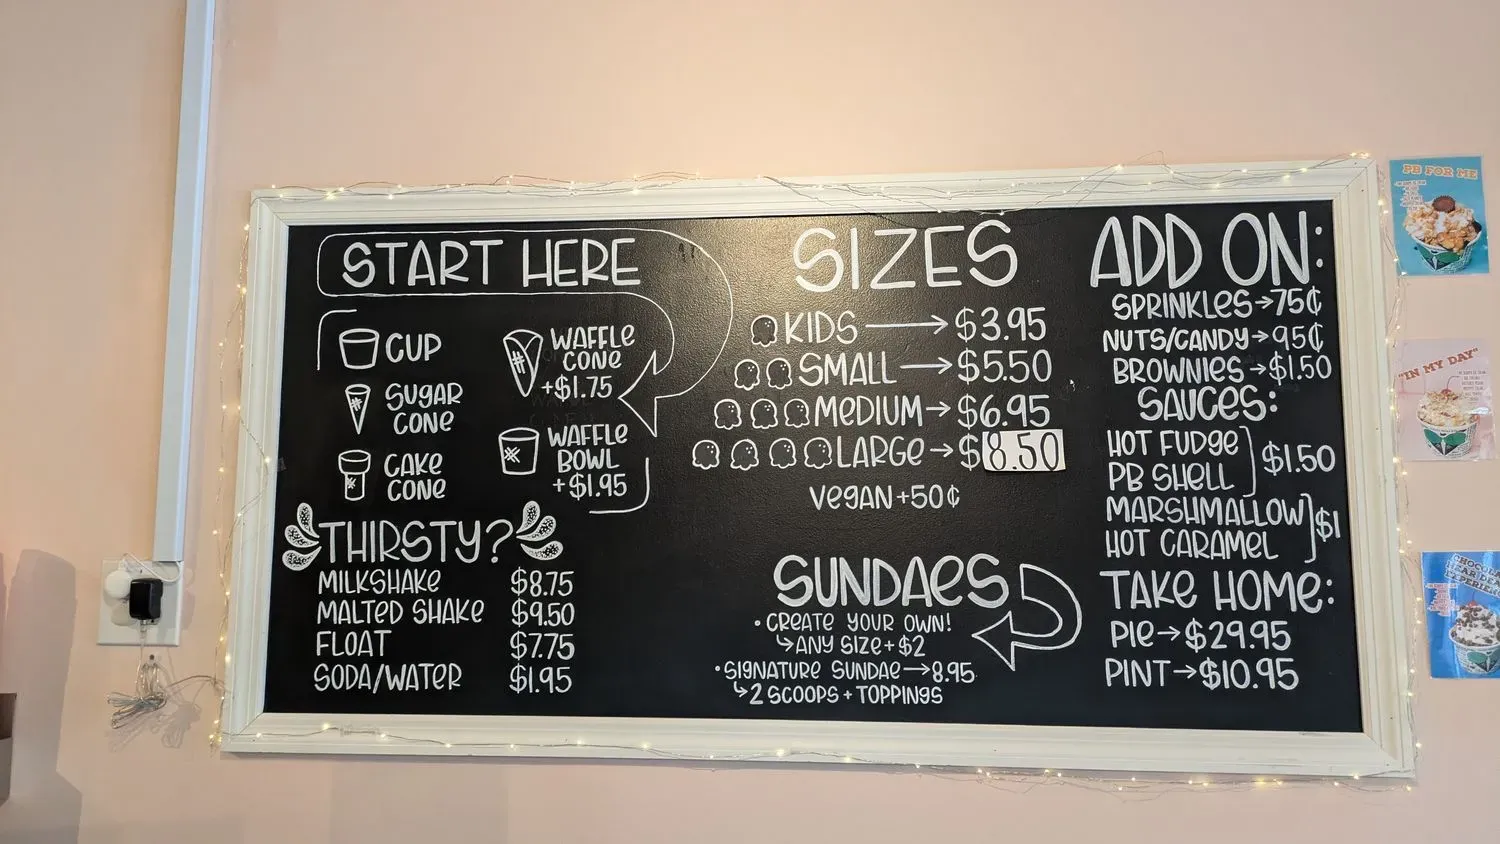 START HERE
CUP
SUGAR
CONE
CAKE
CONE
WAFFLE
CONE
+$1.75
WAFFLE
BOWL
+$1.95
THIRSTY?
MILKSHAKE $8.75
MALTED SHAKE $9.50
FLOAT $7.75
SODA/WATER $1.95
SIZES
KIDS → $3.95
SMALL → $5.50
MEDIUM → $6.95
LARGE → $8.50
VEGAN +50¢
SUNDAES
• CREATE YOUR OWN!
↳ ANY SIZE + $2
• SIGNATURE SUNDAE → 8.95
↳ 2 SCOOPS + TOPPINGS
ADD ON:
SPRINKLES → 75¢
NUTS/CANDY → 95¢
BROWNIES → $1.50
SAUCES:
HOT FUDGE
PB SHELL
$1.50
MARSHMALLOW
HOT CARAMEL
$1
TAKE HOME:
PIE → $29.95
PINT → $10.95
PB FOR ME
"IN MY DAY"